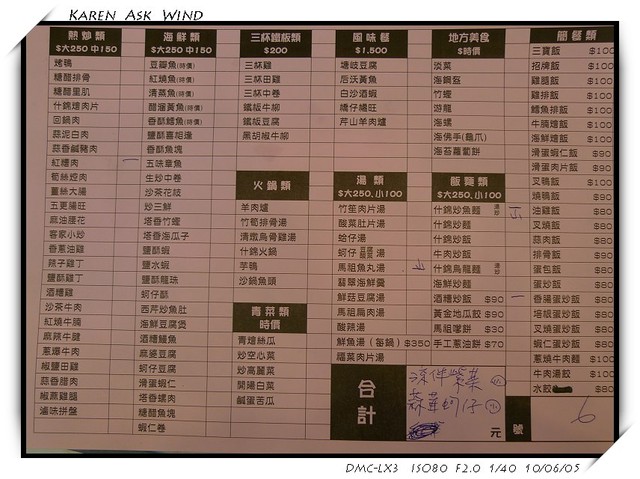 Karen Ask Wind
熱炒類
$大250 中150
烤鴨
糖醋排骨
糖醋里肌
什錦燴肉片
回鍋肉
蒜泥白肉
蒜香鹹豬肉
紅糟肉
筍絲焢肉
薑絲大腸
五更腸旺
麻油腰花
客家小炒
香蔥油雞
辣子雞丁
鹽酥雞丁
酒糟雞
沙茶牛肉
紅燒牛腩
麻辣牛腱
蔥爆牛肉
椒鹽田雞
蒜香腊肉
滷味拼盤
海鮮類
$大250 中150
豆瓣魚(時價)
紅燒魚(時價)
清蒸魚(時價)
醋溜黃魚(時價)
香酥鱈魚(時價)
鹽酥喜相逢
香酥魚塊
五味章魚
生炒中卷
沙茶花枝
炒三鮮
塔香竹蟶
塔香海瓜子
鹽酥蝦
鹽水蝦
鹽酥龍珠
蚵仔酥
西芹炒魚肚
海鮮豆腐煲
酒糟鰻魚
麻婆豆腐
蚵仔豆腐
滑蛋蝦仁
塔香螺肉
糖醋魚塊
蝦仁卷
三杯鐵板類
$200
三杯雞
三杯田雞
三杯中卷
鐵板牛柳
鐵板豆腐
黑胡椒牛柳
火鍋類
羊肉爐
竹筍排骨湯
清燉烏骨雞湯
什錦火鍋
芋鴨
沙鍋魚頭
青菜類
時價
青燴絲瓜
炒空心菜
炒高麗菜
開陽白菜
鹹蛋苦瓜
風味餐
$1,500
塘岐豆腐
后沃黃魚
白沙酒蝦
橋仔蠘旺
芹山羊肉爐
湯類
$大250,小100
竹笙肉片湯
酸菜肚片湯
蛤仔湯
蚵仔
馬祖魚丸湯
翡翠海鮮羹
鮮菇豆腐湯
馬祖扁肉湯
酸辣湯
鮮魚湯 (每鍋) $350
榨菜肉片湯
地方美食
$時價
淡菜
海鋼盔
竹蟶
游龍
海螺
海佛手(龜爪)
海苔蘿蔔餅
飯麵類
$大250,小100
什錦炒魚麵
什錦炒麵
什錦炒飯
牛肉炒飯
什錦烏龍麵
海鮮炒麵
酒糟炒飯 $90
黃金地瓜餃 $90
馬祖嗲餅 $30
手工蔥油餅 $70
簡餐類
三寶飯 $100
招牌飯 $100
雞腿飯 $100
雞排飯 $100
鱈魚排飯 $100
牛腩燴飯 $100
海鮮燴飯 $100
滑蛋蝦仁飯 $90
滑蛋肉片飯 $90
叉鴨飯 $100
燒鴨飯 $90
油雞飯 $80
叉燒飯 $80
蒜肉飯 $80
排骨飯 $80
蛋包飯 $80
蛋炒飯 $80
香腸蛋炒飯 $80
培根蛋炒飯 $80
叉燒蛋炒飯 $80
蝦仁蛋炒飯 $80
蔥燒牛肉麵 $100
牛肉湯餃 $100
水餃 $80
合計
涼拌紫菜
元
號
6
DMC-LX3 ISO80 F2.0 1/40 10/06/05